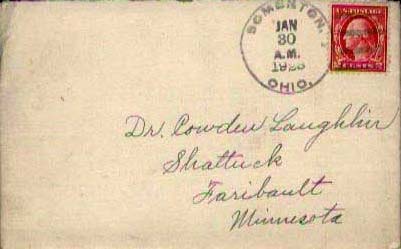 SOMERTON,
JAN
30
A.M.
1923
OHIO.
U.S. POSTAGE
2 CENTS 2
Dr. Cowden Laughlin
Shattuck
Faribault
Minnesota